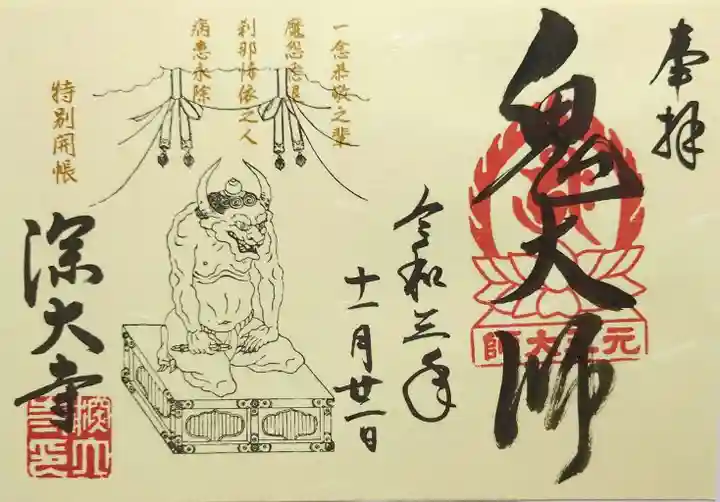 奉拝
鬼大師
元三大師
令和三年
十一月廿一日
一念恭敬之輩
魔怨忘退
刹那帰依之人
病患永除
特別開帳
深大寺